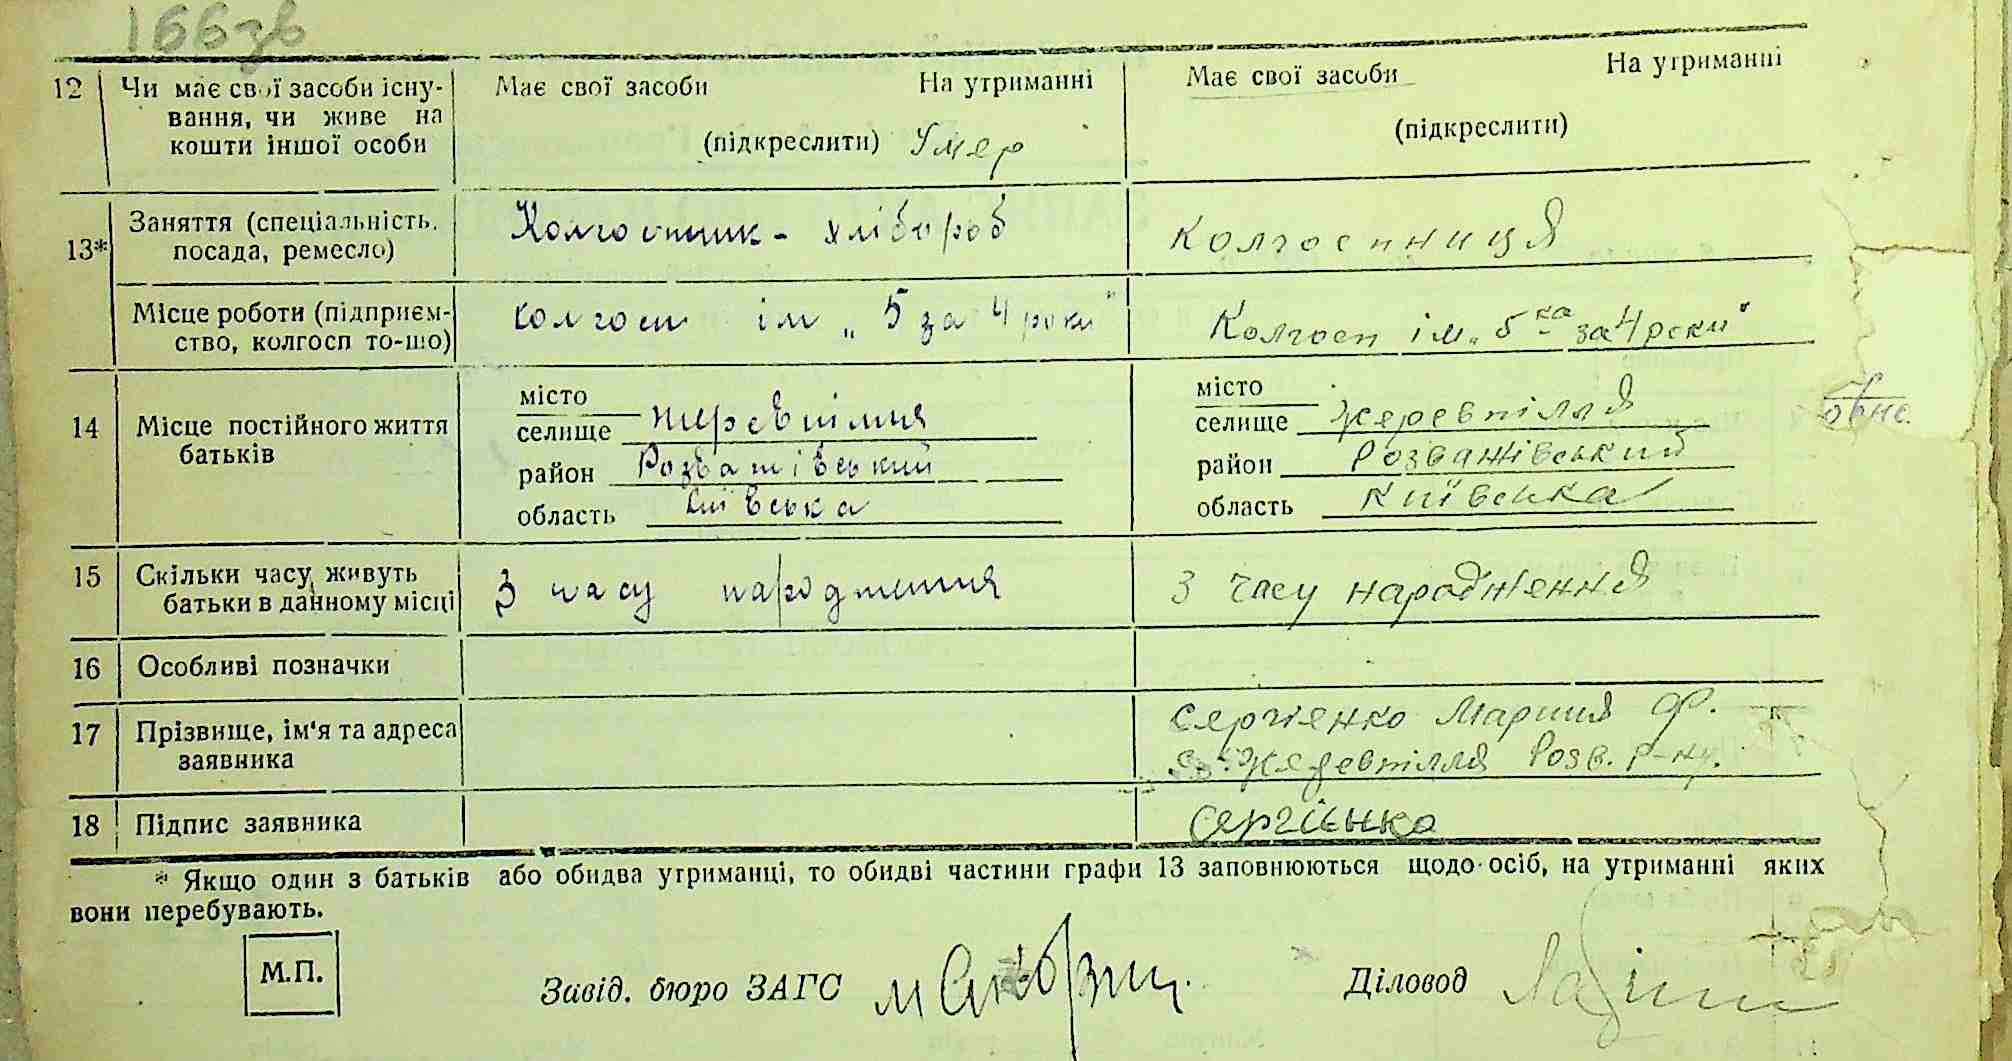 166зв
12 Чи має свої засоби існу- Має свої засоби На утриманні Має свої засоби На утриманні
вання, чи живе на
кошти іншої особи (підкреслити) Умер (підкреслити)
13* Заняття (спеціальність, Колгоспник - хлібороб колгоспниця
посада, ремесло)
Місце роботи (підприєм- колгосп ім „5 за 4 роки" Колгосп ім. „5ка за 4 роки"
ство, колгосп то-що)
14 Місце постійного життя місто місто
батьків селище Жеревпілля селище Жеревпілля
район Розважівський район Розважівський
область Київська область Київська
15 Скільки часу живуть З часу народження З часу народження
батьки в данному місці
16 Особливі позначки
17 Прізвище, ім'я та адреса Сергієнко Мария Ф.
заявника Жеревпілля Розв. р-ну.
18 Підпис заявника Сергієнко
* Якщо один з батьків або обидва утриманці, то обидві частини графи 13 заповнюються щодо осіб, на утриманні яких
вони перебувають.
М.П. Завід. бюро ЗАГС Діловод